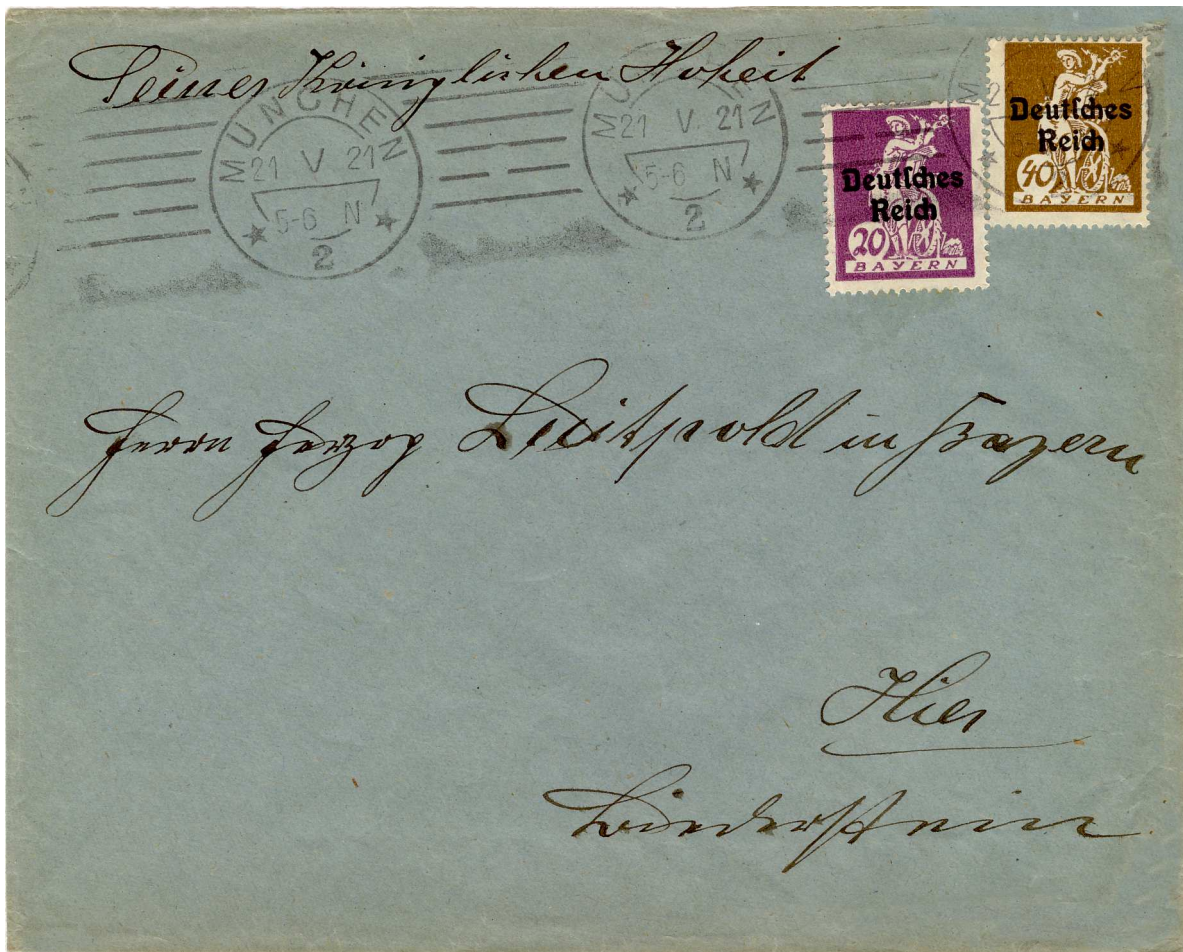 Seiner Königlichen Hoheit
MÜNCHEN
21 V 21
5-6 N
2
MÜNCHEN
21 V 21
5-6 N
2
Deutsches
Reich
20
BAYERN
Deutsches
Reich
40
BAYERN
Herrn Herzog Luitpold in Bayern
Hier
Biederstein